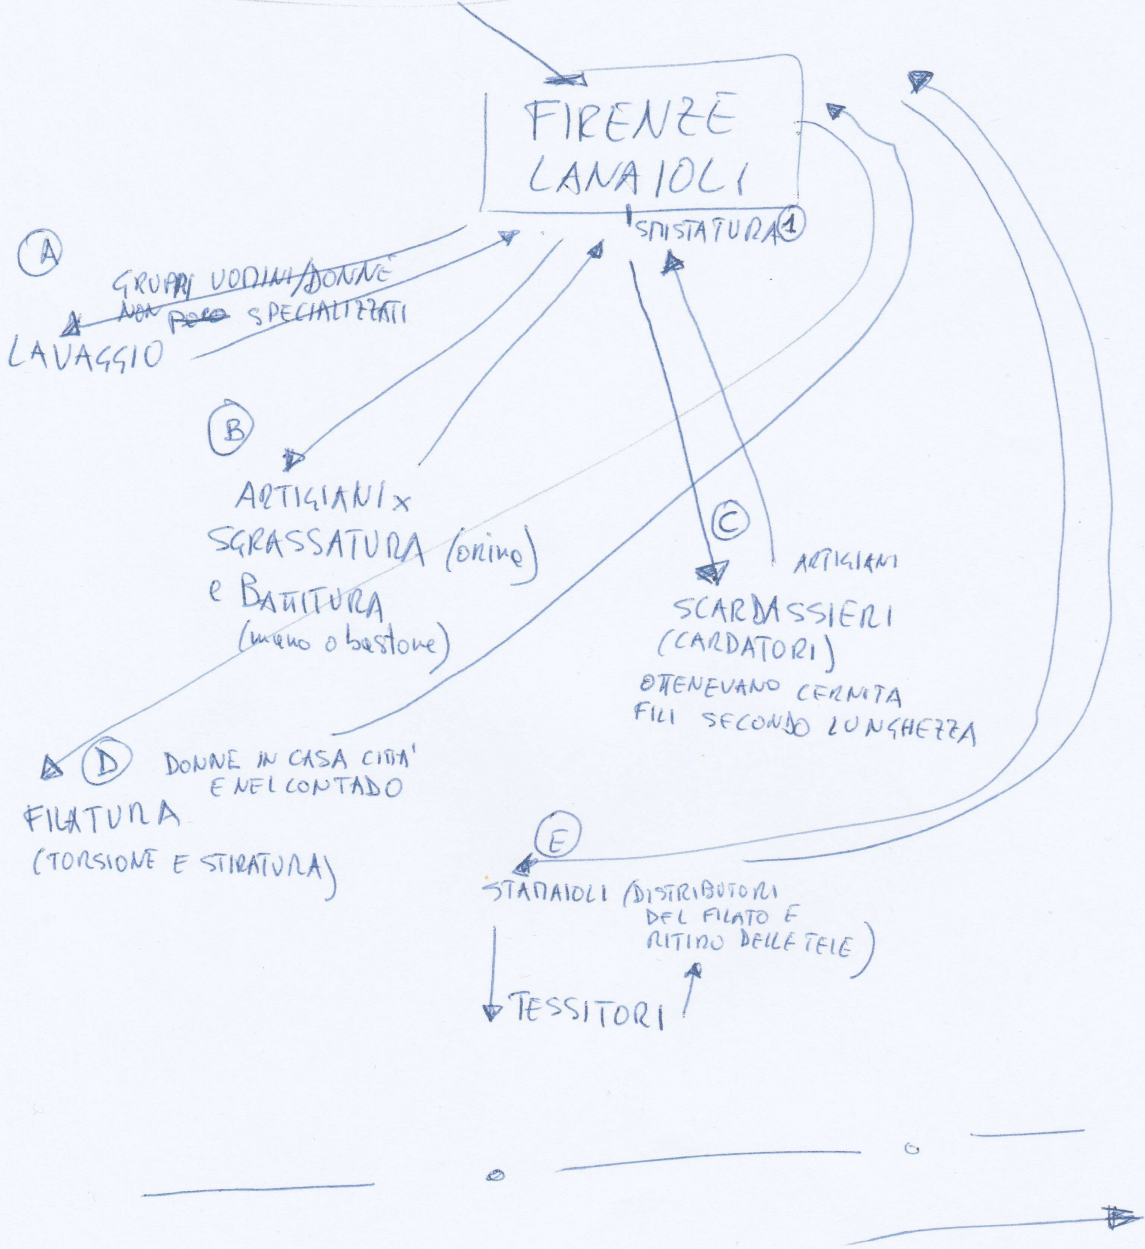 FIRENZE
LANAIOLI
SMISTATURA 1
A
GRUPPI UOMINI/DONNE
NON POCO SPECIALIZZATI
LAVAGGIO
B
ARTIGIANI x
SGRASSATURA (orina)
e BATTITURA
(mano o bastone)
C
ARTIGIANI
SCARDASSIERI
(CARDATORI)
OTTENEVANO CERNITA
FILI SECONDO LUNGHEZZA
D DONNE IN CASA CITTA'
E NEL CONTADO
FILATURA
(TORSIONE E STIRATURA)
E
STAMAIOLI (DISTRIBUTORI
DEL FILATO E
RITIRO DELLE TELE)
TESSITORI